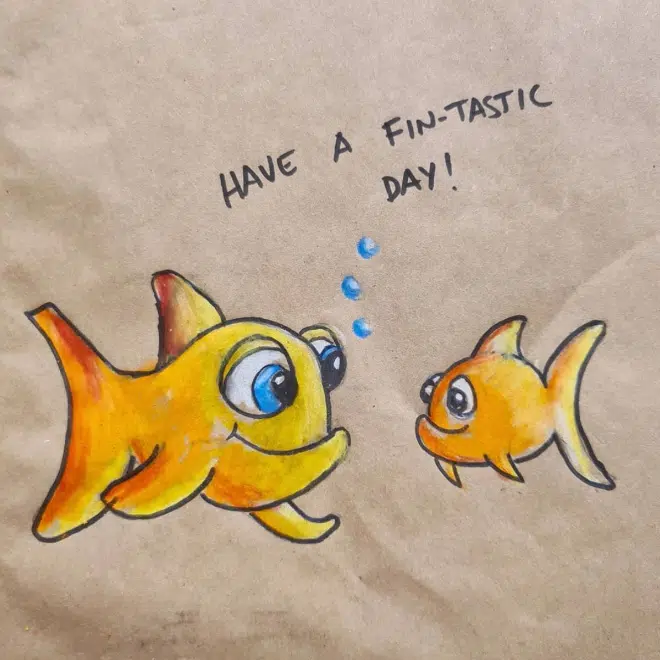 HAVE A FIN-TASTIC
DAY!